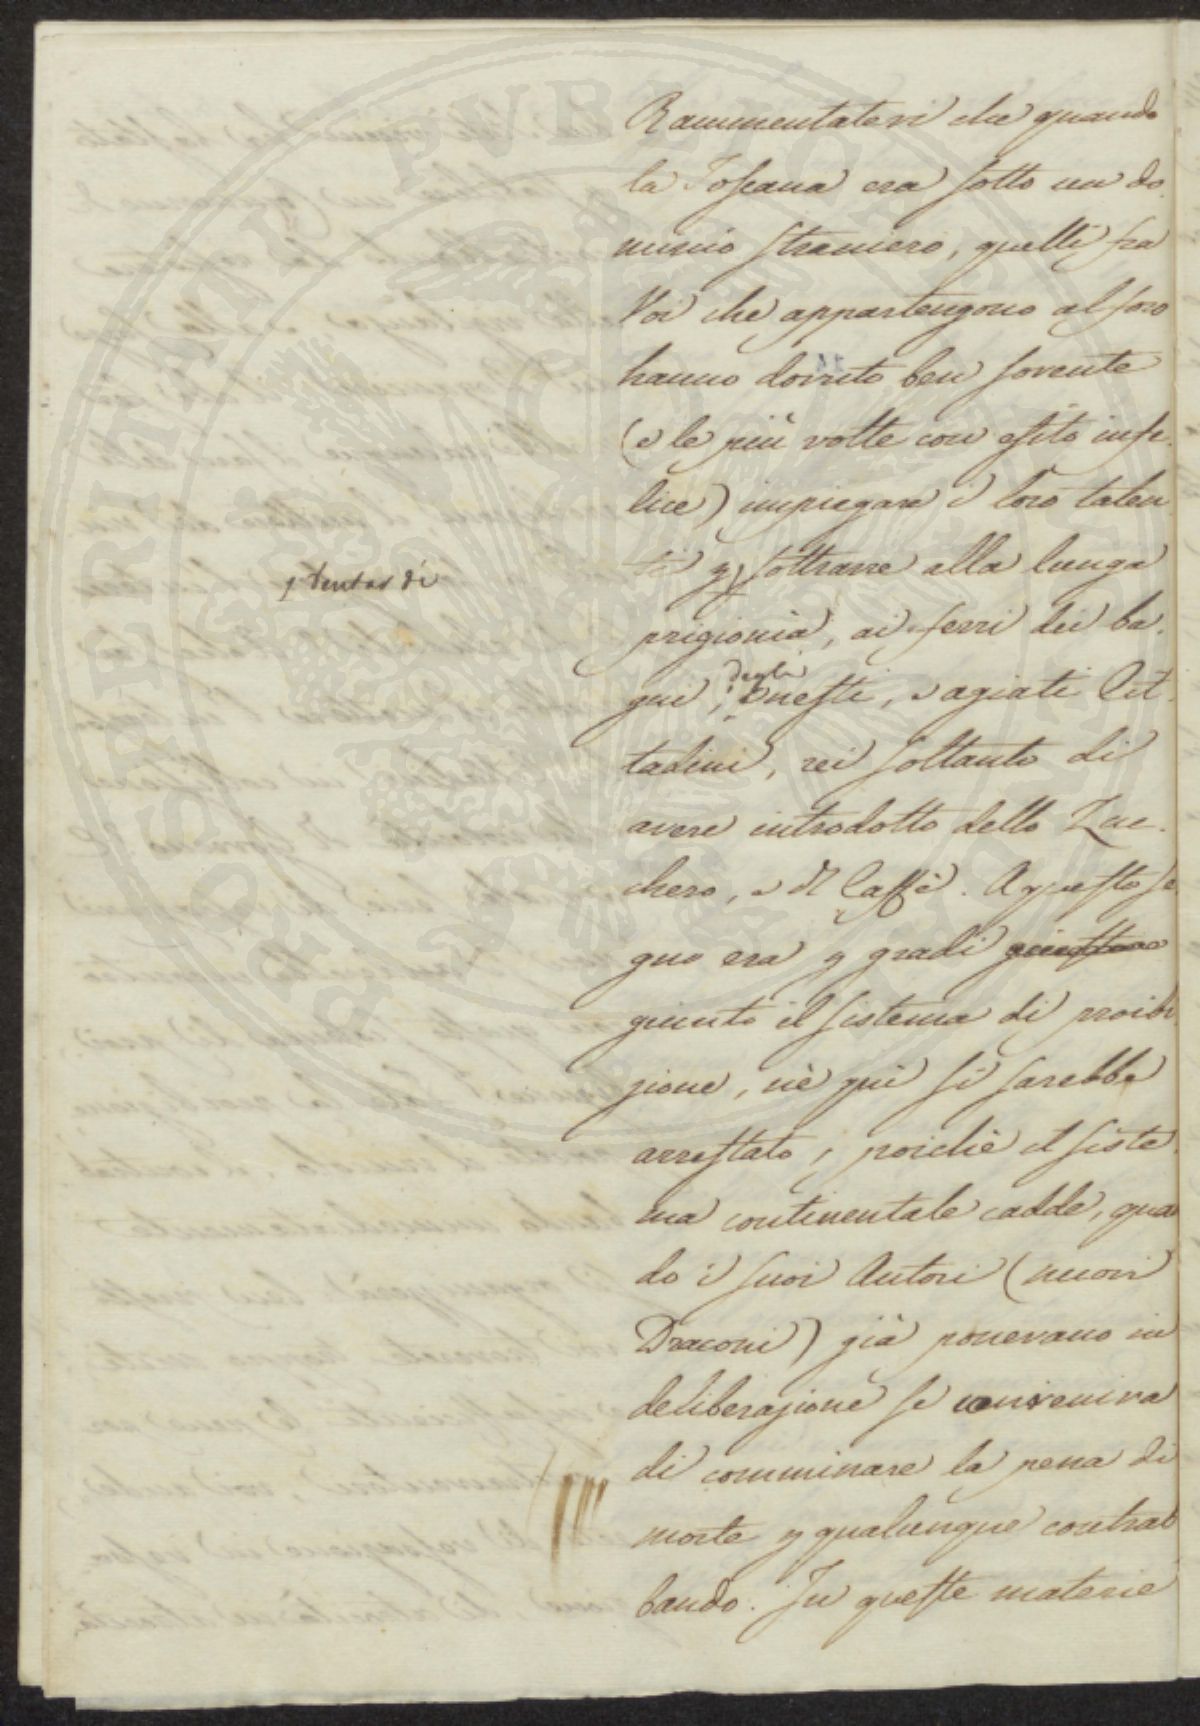 Rammentatevi che quando
la Toscana era sotto un do-
minio straniero, quelli fra
Voi che appartengono al foro
hanno dovuto ben sovente
(e le più volte con esito infe-
lice) impiegare i loro talen-
ti p sottrarre alla lunga
tentar di
prigionia, ai ferri dei ba-
degli
gni, onesti, e agiati Cit-
tadini, rei soltanto di
avere introdotto dello Zuc-
chero, e del Caffè. A questo se-
gno era p gradi
giunto il sistema di proibi-
zione, nè quì si sarebbe
arrestato, poichè il siste-
ma continentale cadde, qua
do i suoi Autori (nuovi
Draconi) già ponevano in
deliberazione se conveniva
di comminare la pena di
morte p qualunque contrab
bando. In queste materie
PROSPERITATI PUBLICAE